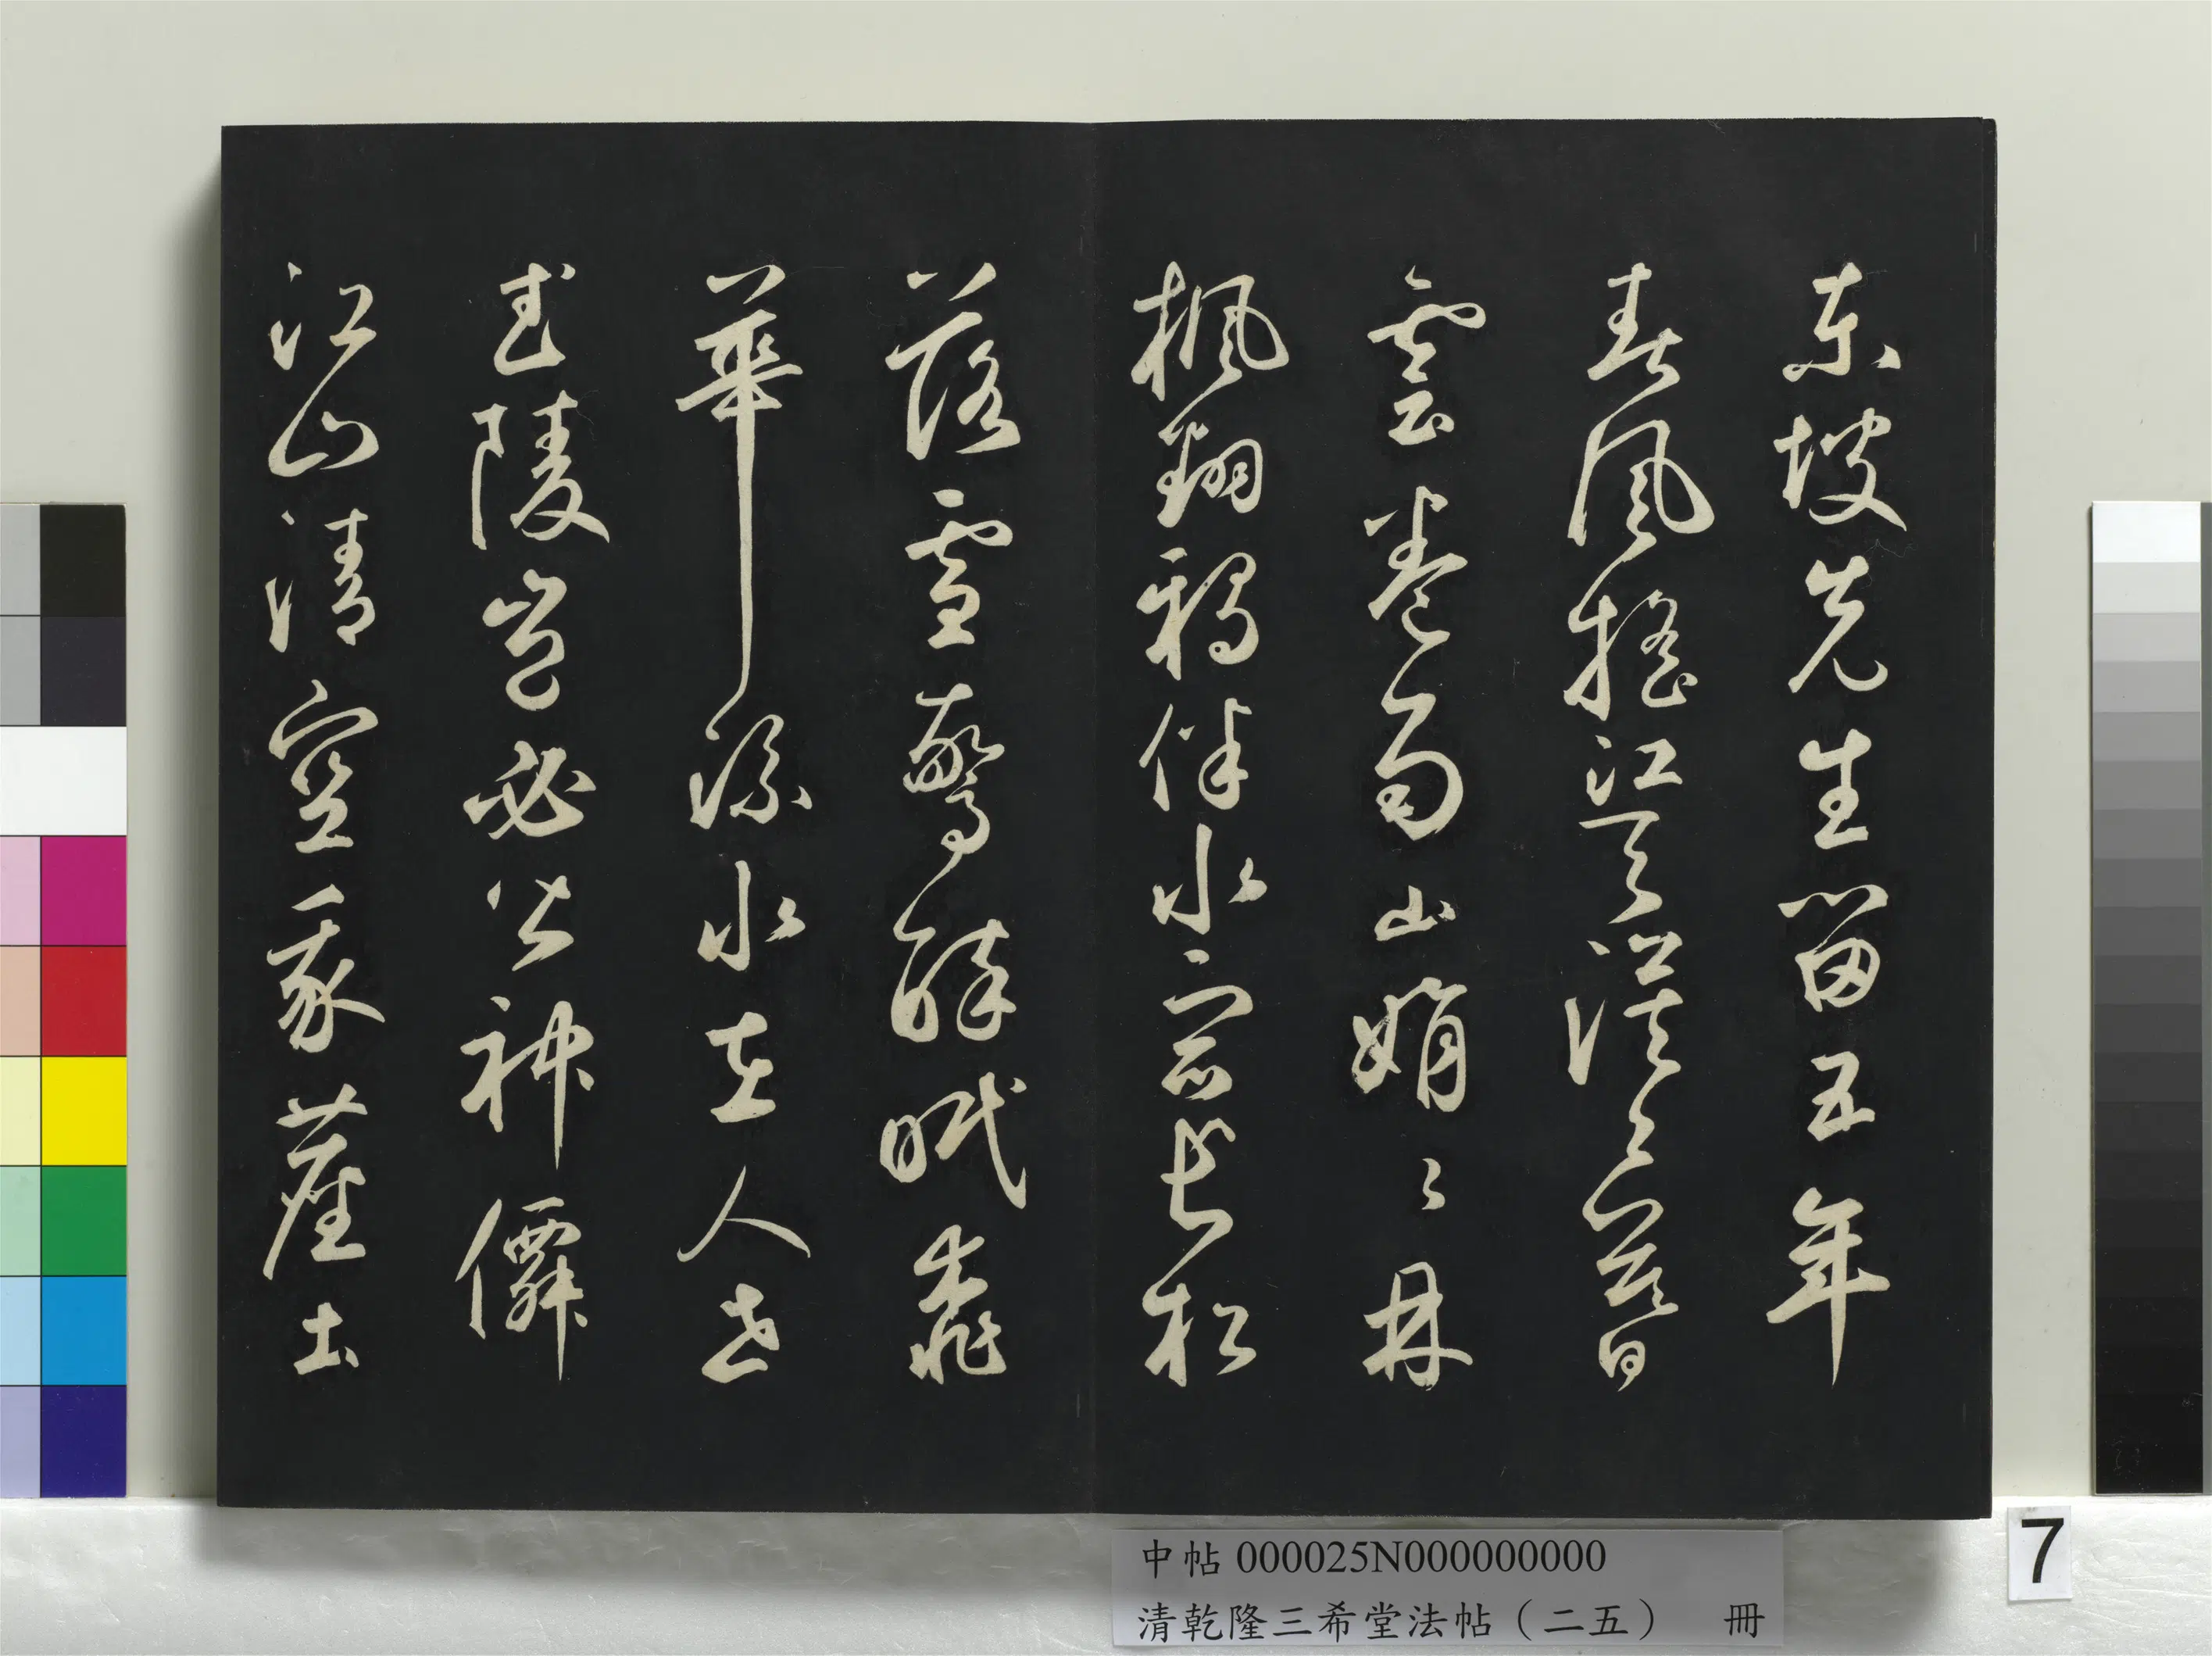 東坡先生留五年
春風搖江天漠々暮
雲卷雨山娟々丹
楓翻鴉伴水宿長松
落雪驚醉眠桃
華流水在人世
武陵豈必皆神僊
江山清空我塵土
中帖 000025N000000000
清乾隆三希堂法帖（二五） 冊
7